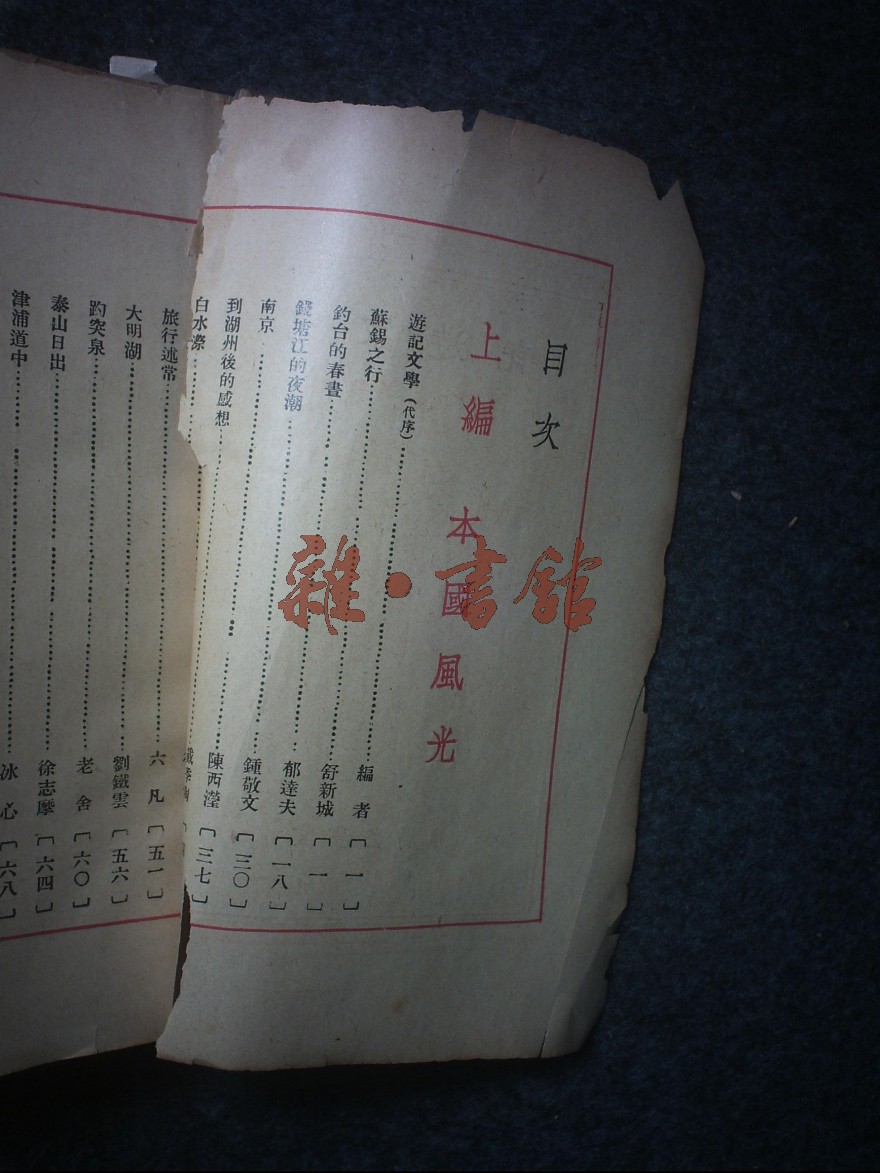 目次
上編 本國風光
遊記文學(代序)……編者〔一〕
蘇錫之行……舒新城〔一〕
釣台的春晝……郁達夫〔一八〕
錢塘江的夜潮……鍾敬文〔三〇〕
南京……陳西瀅〔三七〕
到湖州後的感想……季
白水漈……
旅行述常……六凡〔五一〕
大明湖……劉鐵雲〔五六〕
趵突泉……老舍〔六〇〕
泰山日出……徐志摩〔六四〕
津浦道中……冰心〔六八〕
雜·書館